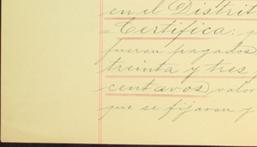 en el Distrit
Certifica: q
fueron pagados
treinta y tres
centavos valor
que se fijaron y